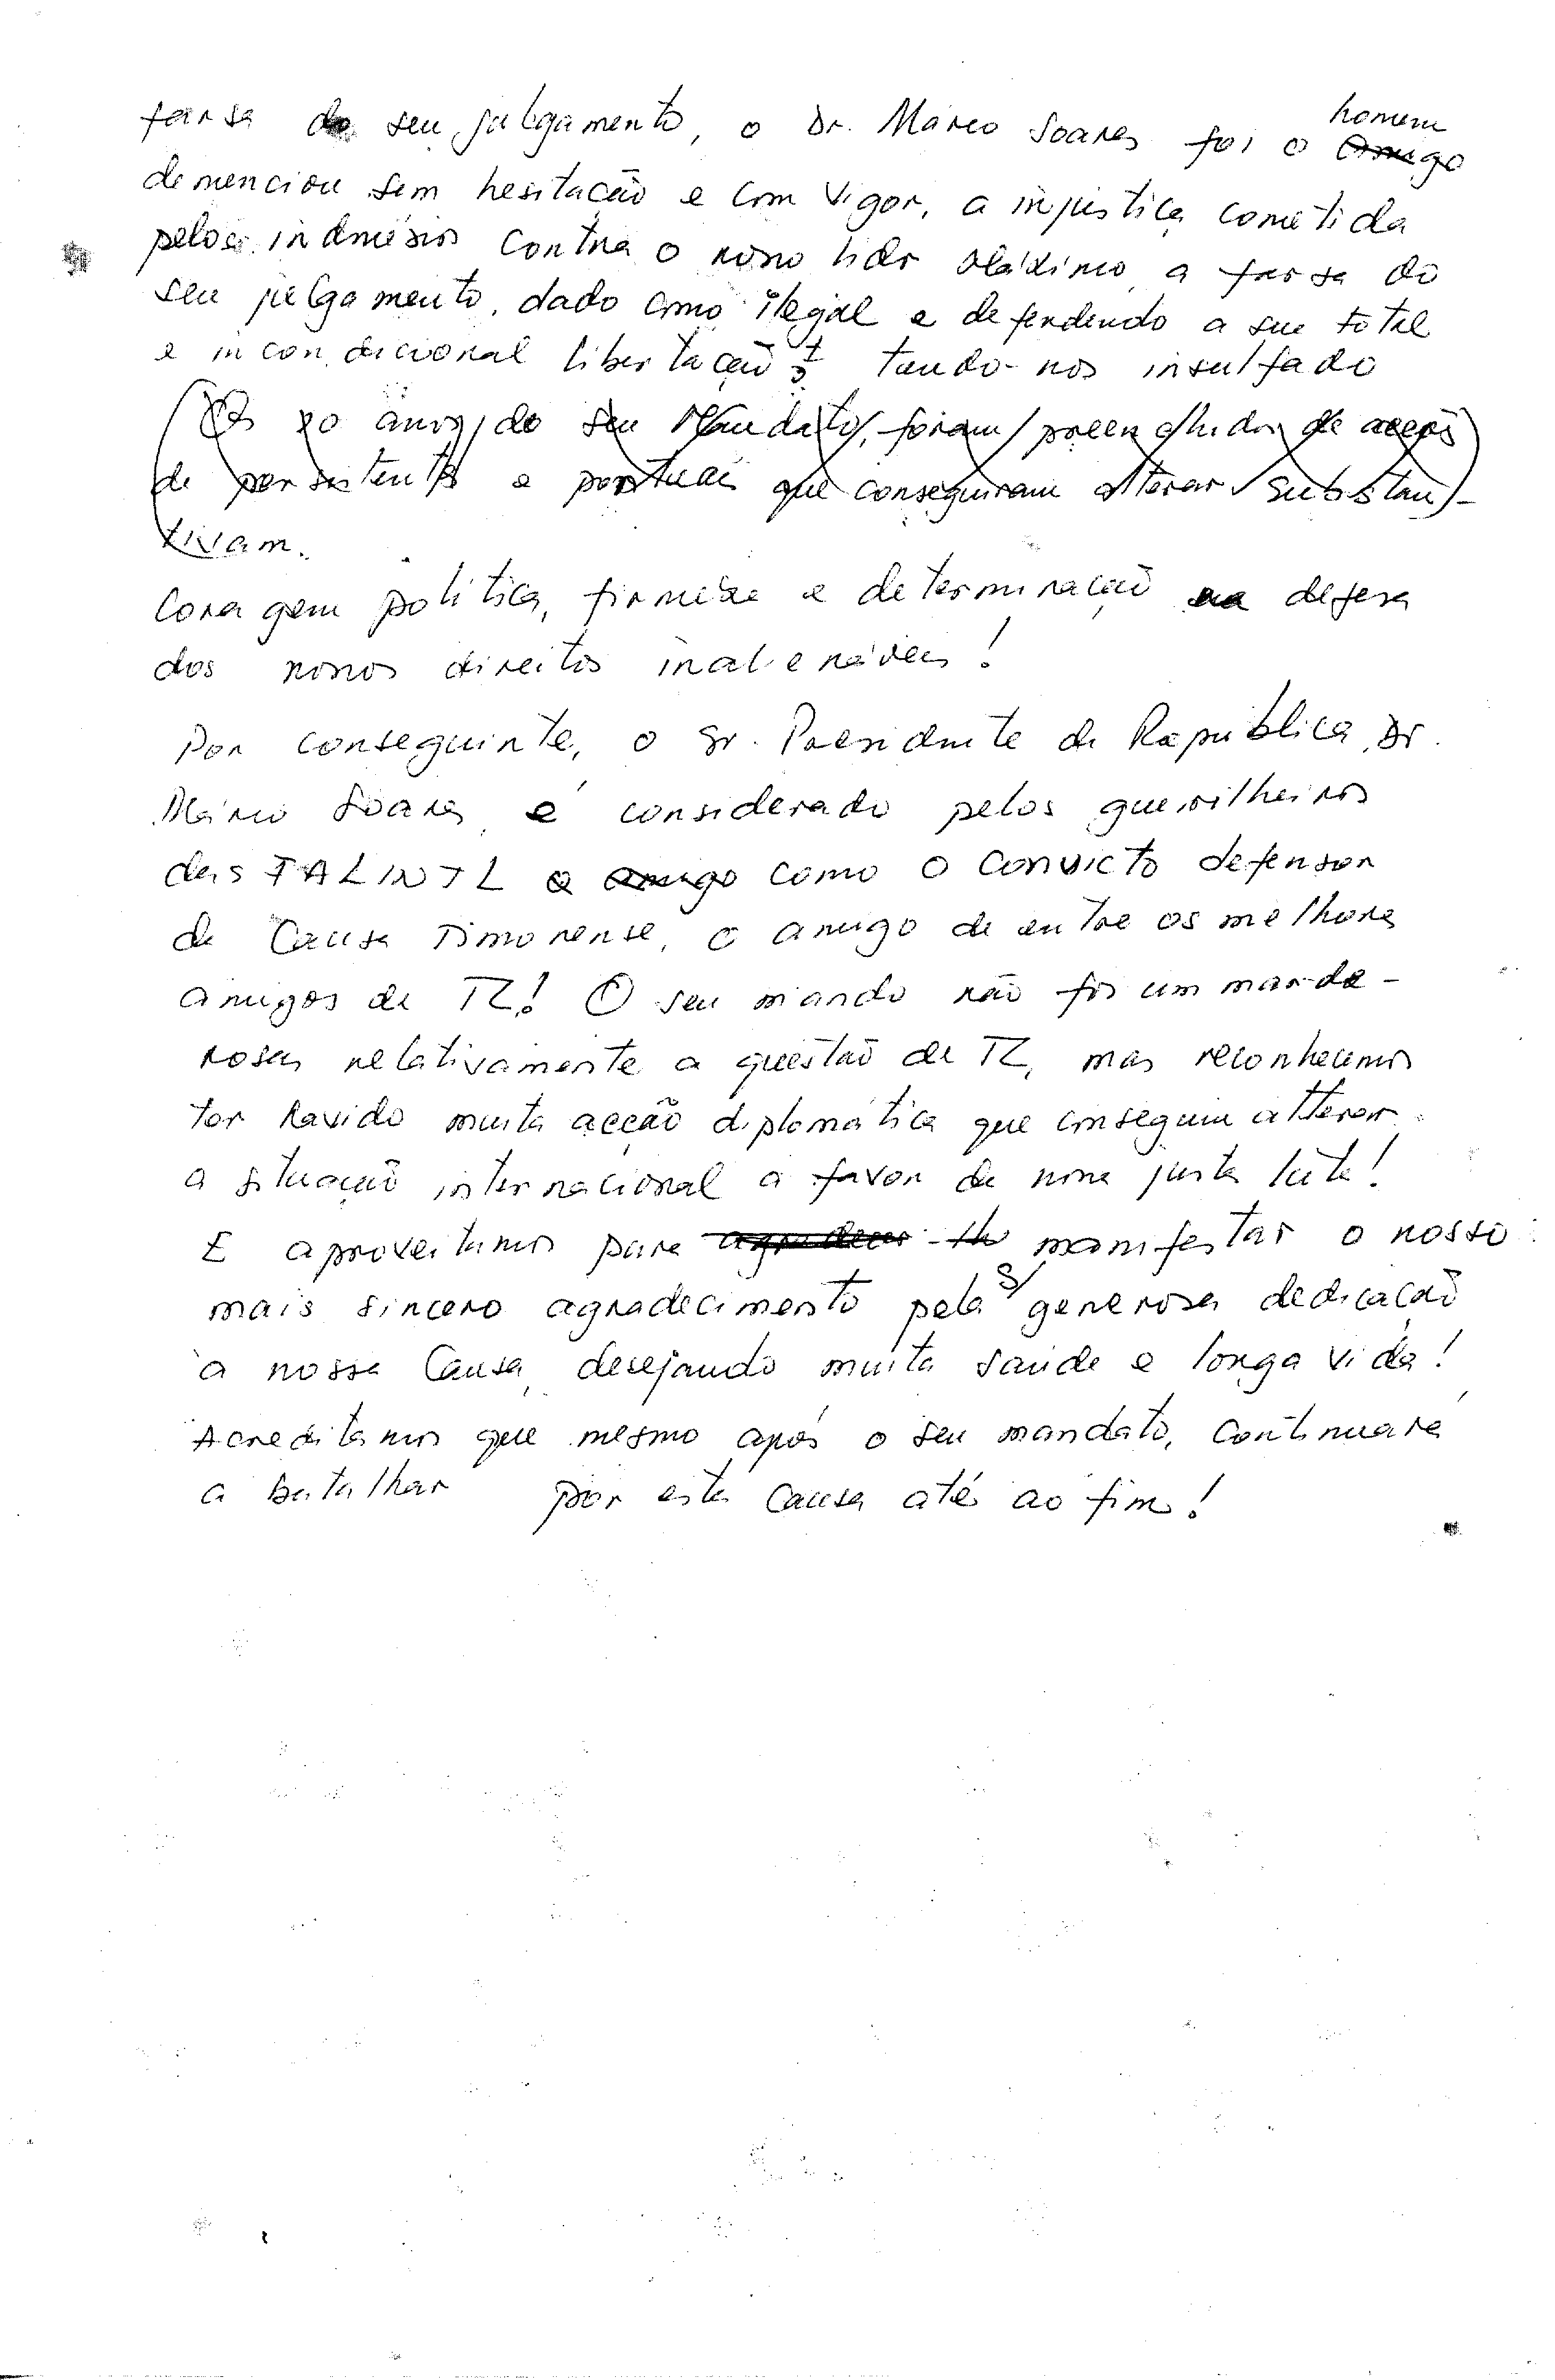 farsa do seu julgamento, o Dr. Mário Soares foi o homem Amigo
denenciou sem hesitação e com vigor, a injustiça cometida
pelos indonésios contra o nosso líder Máximo, a farsa do
seu julgamento, dado como ilegal e defendendo a sua total
e incondicional libertação, tendo-nos insulfado
(Os 10 anos do seu Mandato, foram preenchidos de acções
de persistentes e pontuais que conseguiram alterar substan-
tivam.
Coragem política, firmeza e determinação na defesa
dos nossos direitos inalienáveis!
Por conseguinte, o Sr. Presidente da República, Dr.
Mário Soares é considerado pelos guerrilheiros
das FALINTIL o amigo como o convicto defensor
da Causa Timorense, o amigo de entre os melhores
amigos de TL! O seu mando não foi um mar de
rosas relativamente a questão de TL, mas reconhecemos
ter havido muita acção diplomática que conseguiu alterar
a situação internacional a favor da nossa justa luta!
E aproveitamos para agradecer-lhe manifestar o nosso
mais sincero agradecimento pela generosa dedicação
à nossa Causa, desejando muita saúde e longa vida!
Acreditamos que mesmo após o seu mandato, continuará
a batalhar por esta Causa até ao fim!